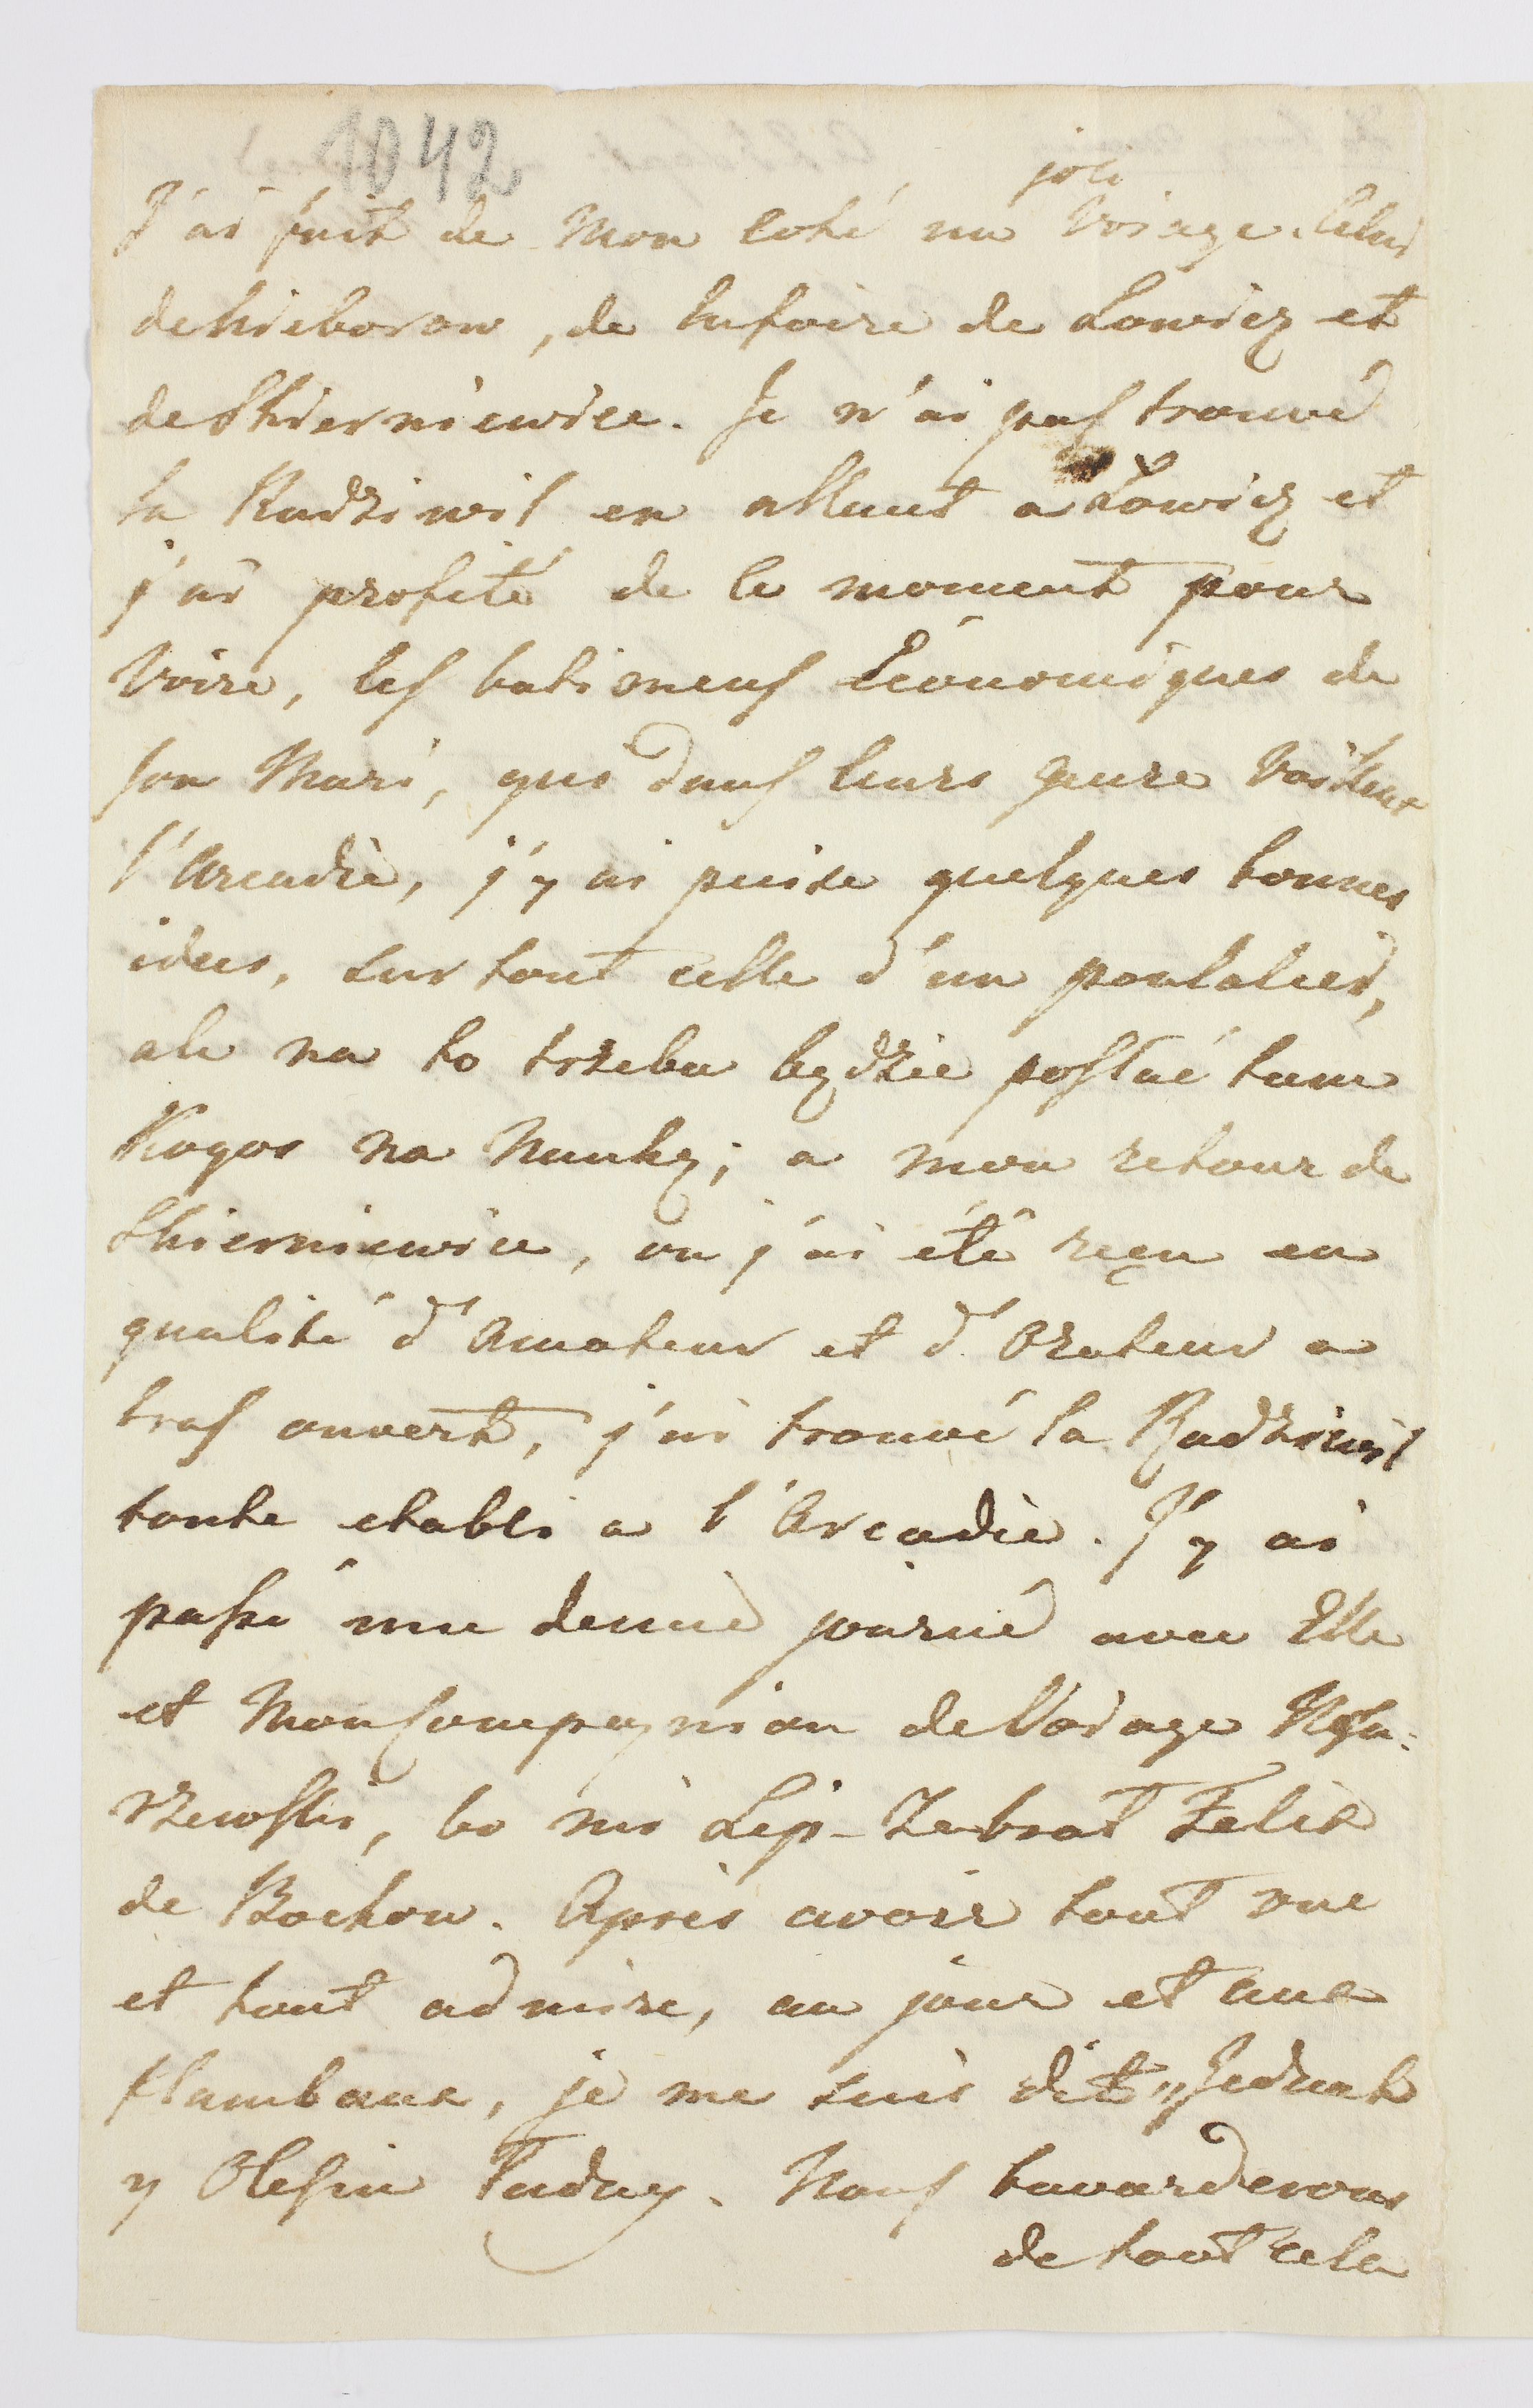 1042
joli
J'ai fait de Mon coté un Voiage. Celui
de Nieborow, de la foire de Lowicz et
de Skierniewice. Je n'ai pas trouvé
la Radziwil en allant a Łowicz et
j'ai profité de ce moment pour
Voire, les batimens Économiques de
son Mari, qui dans leurs genre Vaillent
l'Arcadie, j'y ai puise quelques bonnes
idees, sur tout celle d'un poulalier,
ale na to trzeba będzie posłać tam
Kogos na Naukę; a mon retour de
Skierniewice, ou j'ai été reçu en
qualité d'Amateur et d'Orateur a
bras ouvert, j'ai trouvé la Radziwil
toute etabli a l'Arcadie. J'y ai
passé une demie journé avec Elle
et Mon Compagnion de Voiage
bo mi Zebrat Felix
de Bochow. Après avoir tout vue
et tout admire, au jour et aux
flambaux, je me suis dit „Jednak
y Olesin Ładny. Nous bavarderons
de tout cela